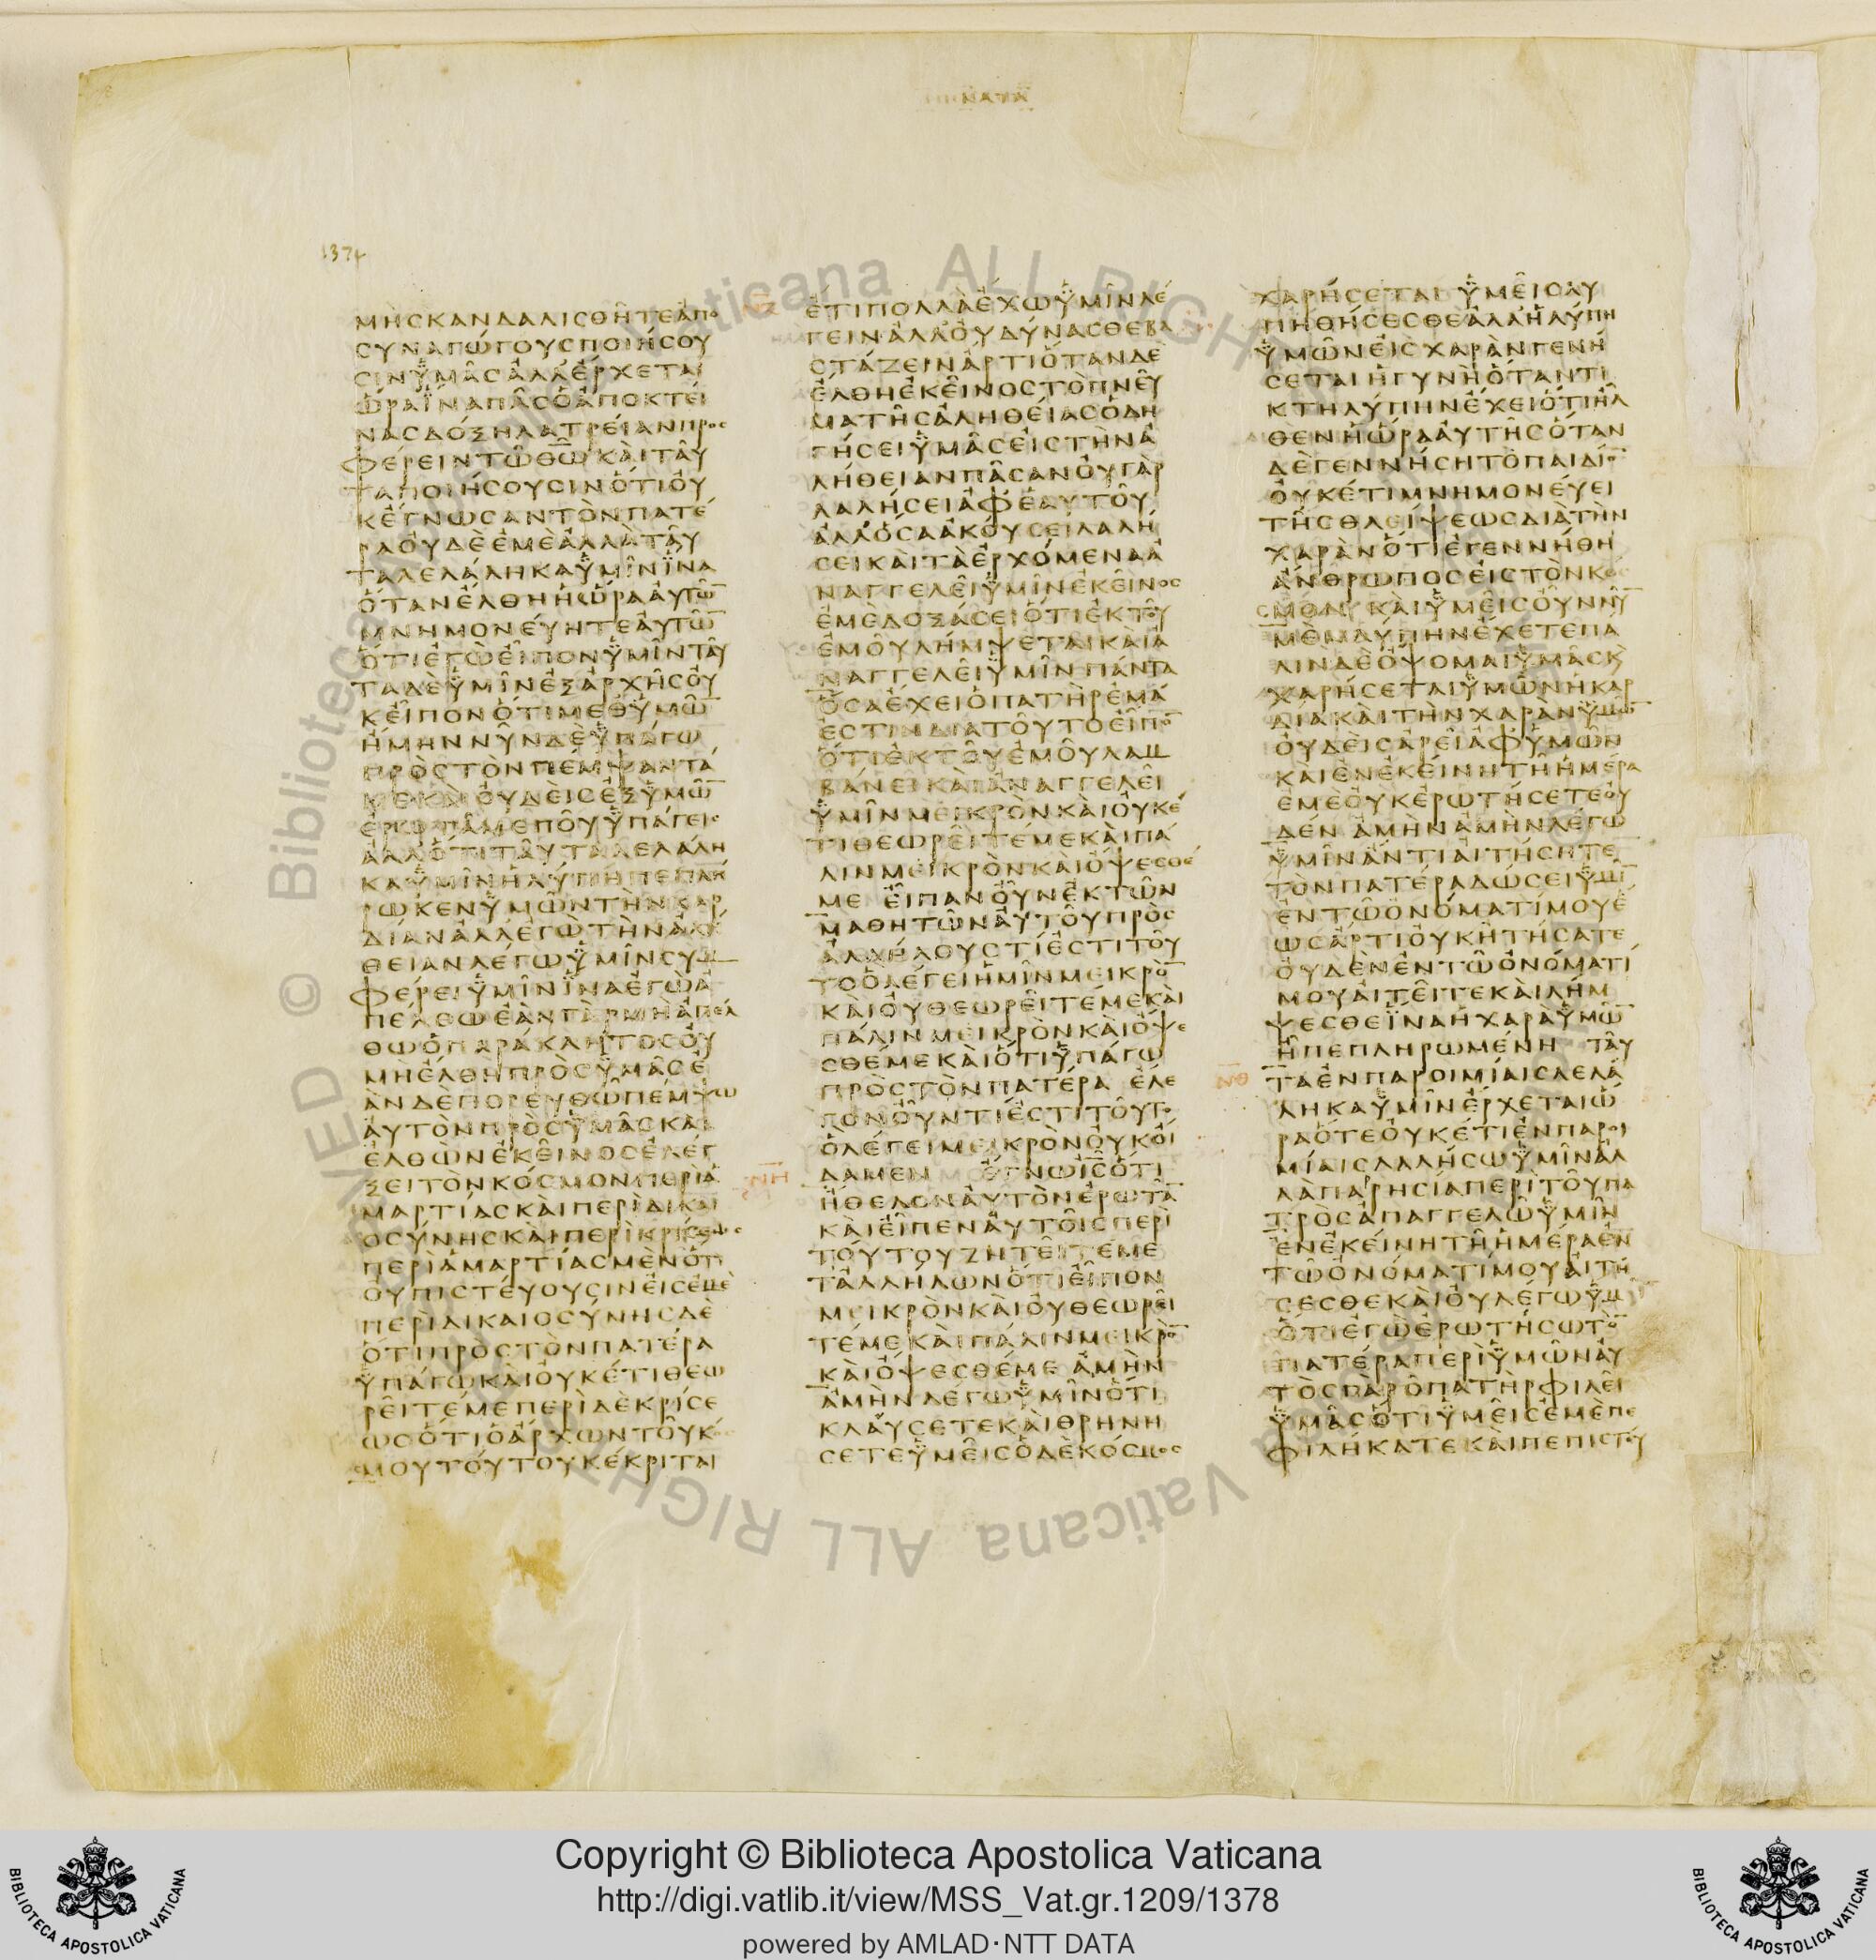 ΚΑΤΑ
1374
ΜΗΣΚΑΝΔΑΛΙΣΘΗΤΕΑΠΟ
ΣΥΝΑΓΩΓΟΥΣΠΟΙΗΣΟΥ
ΣΙΝΫΜΑΣΑΛΛΕΡΧΕΤΑΙ
ΩΡΑΪΝΑΠΑΣΟΑΠΟΚΤΕΙ
ΝΑΣΔΟΞΗΛΑΤΡΕΙΑΝΠΡΟΣ
ΦΕΡΕΙΝΤΩΘΩΚΑΙΤΑΥ
ΤΑΠΟΙΗΣΟΥΣΙΝΟΤΙΟΥ
ΚΕΓΝΩΣΑΝΤΟΝΠΑΤΕ
ΡΑΟΥΔΕΕΜΕΑΛΛΑΤΑΥ
ΤΑΛΕΛΑΛΗΚΑΫΜΙΝΪΝΑ
ΟΤΑΝΕΛΘΗΗΩΡΑΑΥΤΩ̅
ΜΝΗΜΟΝΕΥΗΤΕΑΥΤΩ̅
ΟΤΙΕΓΩΕΙΠΟΝΫΜΙΝΤΑΥ
ΤΑΔΕΫΜΙΝΕΞΑΡΧΗΣΟΥ
ΚΕΙΠΟΝΟΤΙΜΕΘΫΜΩ̅
ΗΜΗΝΝΥΝΔΕΫΠΑΓΩ
ΠΡΟΣΤΟΝΠΕΜΨΑΝΤΑ
ΜΕΚΑΙΟΥΔΕΙΣΕΞΫΜΩ̅
ΕΡΩΤΑΜΕΠΟΥΫΠΑΓΕΙΣ
ΑΛΛΟΤΙΤΑΥΤΑΛΕΛΑΛΗ
ΚΑΫΜΙΝΗΛΥΠΗΠΕΠΛΗ
ΡΩΚΕΝΫΜΩΝΤΗΝΚΑΡ
ΔΙΑΝΑΛΛΕΓΩΤΗΝΑΛΗ
ΘΕΙΑΝΛΕΓΩΫΜΙΝΣΥΜ
ΦΕΡΕΙΫΜΙΝΪΝΑΕΓΩΑ
ΠΕΛΘΩΕΑΝΓΑΡΜΗΑΠΕΛ
ΘΩΟΠΑΡΑΚΛΗΤΟΣΟΥ
ΜΗΕΛΘΗΠΡΟΣΫΜΑΣΕ
ΑΝΔΕΠΟΡΕΥΘΩΠΕΜΨΩ
ΑΥΤΟΝΠΡΟΣΫΜΑΣΚΑΙ
ΕΛΘΩΝΕΚΕΙΝΟΣΕΛΕΓ
ΞΕΙΤΟΝΚΟΣΜΟΝΠΕΡΙΑ
ΜΑΡΤΙΑΣΚΑΙΠΕΡΙΔΙΚΑΙ
ΟΣΥΝΗΣΚΑΙΠΕΡΙΚΡΙΣΕΩΣ
ΠΕΡΙΑΜΑΡΤΙΑΣΜΕΝΟΤΙ
ΟΥΠΙΣΤΕΥΟΥΣΙΝΕΙΣΕΜΕ
ΠΕΡΙΔΙΚΑΙΟΣΥΝΗΣΔΕ
ΟΤΙΠΡΟΣΤΟΝΠΑΤΕΡΑ
ΫΠΑΓΩΚΑΙΟΥΚΕΤΙΘΕΩ
ΡΕΙΤΕΜΕΠΕΡΙΔΕΚΡΙΣΕ
ΩΣΟΤΙΟΑΡΧΩΝΤΟΥΚΟΣ
ΜΟΥΤΟΥΤΟΥΚΕΚΡΙΤΑΙ
ΕΤΙΠΟΛΛΑΕΧΩΫΜΙΝΛΕ
ΓΕΙΝΑΛΛΟΥΔΥΝΑΣΘΕΒΑ
ΣΤΑΖΕΙΝΑΡΤΙΟΤΑΝΔΕ
ΕΛΘΗΕΚΕΙΝΟΣΤΟΠΝΕΥ
ΜΑΤΗΣΑΛΗΘΕΙΑΣΟΔΗ
ΓΗΣΕΙΫΜΑΣΕΙΣΤΗΝΑ
ΛΗΘΕΙΑΝΠΑΣΑΝΟΥΓΑΡ
ΛΑΛΗΣΕΙΑΦΕΑΥΤΟΥ
ΑΛΛΟΣΑΑΚΟΥΣΕΙΛΑΛΗ
ΣΕΙΚΑΙΤΑΕΡΧΟΜΕΝΑΑ
ΝΑΓΓΕΛΕΙΫΜΙΝΕΚΕΙΝΟΣ
ΕΜΕΔΟΞΑΣΕΙΟΤΙΕΚΤΟΥ
ΕΜΟΥΛΗΜΨΕΤΑΙΚΑΙΑ
ΝΑΓΓΕΛΕΙΫΜΙΝΠΑΝΤΑ
ΟΣΑΕΧΕΙΟΠΑΤΗΡΕΜΑ
ΕΣΤΙΝΔΙΑΤΟΥΤΟΕΙΠΟ̅
ΟΤΙΕΚΤΟΥΕΜΟΥΛΑΜ
ΒΑΝΕΙΚΑΙΑΝΑΓΓΕΛΕΙ
ΫΜΙΝΜΕΙΚΡΟΝΚΑΙΟΥΚΕ
ΤΙΘΕΩΡΕΙΤΕΜΕΚΑΙΠΑ
ΛΙΝΜΕΙΚΡΟΝΚΑΙΟΨΕΣΘΕ
ΜΕ ΕΙΠΑΝΟΥΝΕΚΤΩΝ
ΜΑΘΗΤΩΝΑΥΤΟΥΠΡΟΣ
ΑΛΛΗΛΟΥΣΤΙΕΣΤΙΤΟΥ
ΤΟΟΛΕΓΕΙΗΜΙΝΜΕΙΚΡΟ̅
ΚΑΙΟΥΘΕΩΡΕΙΤΕΜΕΚΑΙ
ΠΑΛΙΝΜΕΙΚΡΟΝΚΑΙΟΨΕ
ΣΘΕΜΕΚΑΙΟΤΙΫΠΑΓΩ
ΠΡΟΣΤΟΝΠΑΤΕΡΑ ΕΛΕ
ΓΟΝΟΥΝΤΙΕΣΤΙΤΟΥΤΟ
ΟΛΕΓΕΙΜΕΙΚΡΟΝΟΥΚΟΙ
ΔΑΜΕΝ ΕΓΝΩΙΣΟΤΙ
ΗΘΕΛΟΝΑΥΤΟΝΕΡΩΤΑ̅
ΚΑΙΕΙΠΕΝΑΥΤΟΙΣΠΕΡΙ
ΤΟΥΤΟΥΖΗΤΕΙΤΕΜΕ
ΤΑΛΛΗΛΩΝΟΤΙΕΙΠΟΝ
ΜΕΙΚΡΟΝΚΑΙΟΥΘΕΩΡΕΙ
ΤΕΜΕΚΑΙΠΑΛΙΝΜΕΙΚΡΟ̅
ΚΑΙΟΨΕΣΘΕΜΕ ΑΜΗΝ
ΑΜΗΝΛΕΓΩΫΜΙΝΟΤΙ
ΚΛΑΥΣΕΤΕΚΑΙΘΡΗΝΗ
ΣΕΤΕΫΜΕΙΣΟΔΕΚΟΣΜΟΣ
ΧΑΡΗΣΕΤΑΙ ΫΜΕΙΣΛΥ
ΠΗΘΗΣΕΣΘΕΑΛΛΗΛΥΠΗ
ΫΜΩΝΕΙΣΧΑΡΑΝΓΕΝΗ
ΣΕΤΑΙΗΓΥΝΗΟΤΑΝΤΙ
ΚΤΗΛΥΠΗΝΕΧΕΙΟΤΙΗΛ
ΘΕΝΗΩΡΑΑΥΤΗΣΟΤΑΝ
ΔΕΓΕΝΝΗΣΗΤΟΠΑΙΔΙΟ̅
ΟΥΚΕΤΙΜΝΗΜΟΝΕΥΕΙ
ΤΗΣΘΛΕΙΨΕΩΣΔΙΑΤΗΝ
ΧΑΡΑΝΟΤΙΕΓΕΝΝΗΘΗ
ΑΝΘΡΩΠΟΣΕΙΣΤΟΝΚΟ
ΣΜΟΝ ΚΑΙΫΜΕΙΣΟΥΝΝΥ̅
ΜΕΝΛΥΠΗΝΕΧΕΤΕΠΑ
ΛΙΝΔΕΟΨΟΜΑΙΫΜΑΣΚ
ΧΑΡΗΣΕΤΑΙΫΜΩΝΗΚΑΡ
ΔΙΑΚΑΙΤΗΝΧΑΡΑΝΫΜΩ̅
ΟΥΔΕΙΣΑΡΕΙΑΦΫΜΩΝ
ΚΑΙΕΝΕΚΕΙΝΗΤΗΗΜΕΡΑ
ΕΜΕΟΥΚΕΡΩΤΗΣΕΤΕΟΥ
ΔΕΝ ΑΜΗΝΑΜΗΝΛΕΓΩ
ΫΜΙΝΑΝΤΙΑΙΤΗΣΗΤΕ
ΤΟΝΠΑΤΕΡΑΔΩΣΕΙΫΜΙ̅
ΕΝΤΩΟΝΟΜΑΤΙΜΟΥΕ
ΩΣΑΡΤΙΟΥΚΗΤΗΣΑΤΕ
ΟΥΔΕΝΕΝΤΩΟΝΟΜΑΤΙ
ΜΟΥΑΙΤΕΙΤΕΚΑΙΛΗΜ
ΨΕΣΘΕΪΝΑΗΧΑΡΑΫΜΩ̅
ΗΠΕΠΛΗΡΩΜΕΝΗ ΤΑΥ
ΤΑΕΝΠΑΡΟΙΜΙΑΙΣΛΕΛΑ
ΛΗΚΑΫΜΙΝΕΡΧΕΤΑΙΩ
ΡΑΟΤΕΟΥΚΕΤΙΕΝΠΑΡΟΙ
ΜΙΑΙΣΛΑΛΗΣΩΫΜΙΝΑΛ
ΛΑΠΑΡΗΣΙΑΠΕΡΙΤΟΥΠΑ
ΤΡΟΣΑΠΑΓΓΕΛΩΫΜΙΝ
ΕΝΕΚΕΙΝΗΤΗΗΜΕΡΑΕΝ
ΤΩΟΝΟΜΑΤΙΜΟΥΑΙΤΗ
ΣΕΣΘΕΚΑΙΟΥΛΕΓΩΫΜΙ̅
ΟΤΙΕΓΩΕΡΩΤΗΣΩΤΟ̅
ΠΑΤΕΡΑΠΕΡΙΫΜΩΝΑΥ
ΤΟΣΓΑΡΟΠΑΤΗΡΦΙΛΕΙ
ΫΜΑΣΟΤΙΫΜΕΙΣΕΜΕΠΕ
ΦΙΛΗΚΑΤΕΚΑΙΠΕΠΙΣΤΕΥ
© Biblioteca Apostolica Vaticana ALL RIGHTS RESERVED
BIBLIOTECA APOSTOLICA VATICANA
Copyright © Biblioteca Apostolica Vaticana
http://digi.vatlib.it/view/MSS_Vat.gr.1209/1378
powered by AMLAD·NTT DATA
BIBLIOTECA APOSTOLICA VATICANA